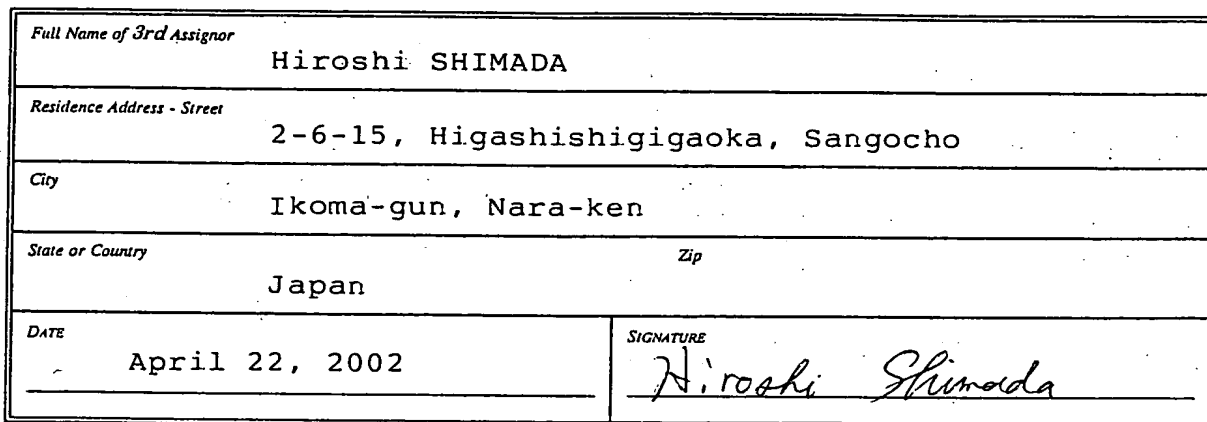 Full Name of 3rd Assignor
Hiroshi SHIMADA
Residence Address - Street
2-6-15, Higashishigigaoka, Sangocho
City
Ikoma-gun, Nara-ken
State or Country Zip
Japan
DATE SIGNATURE
April 22, 2002 Hiroshi Shimada